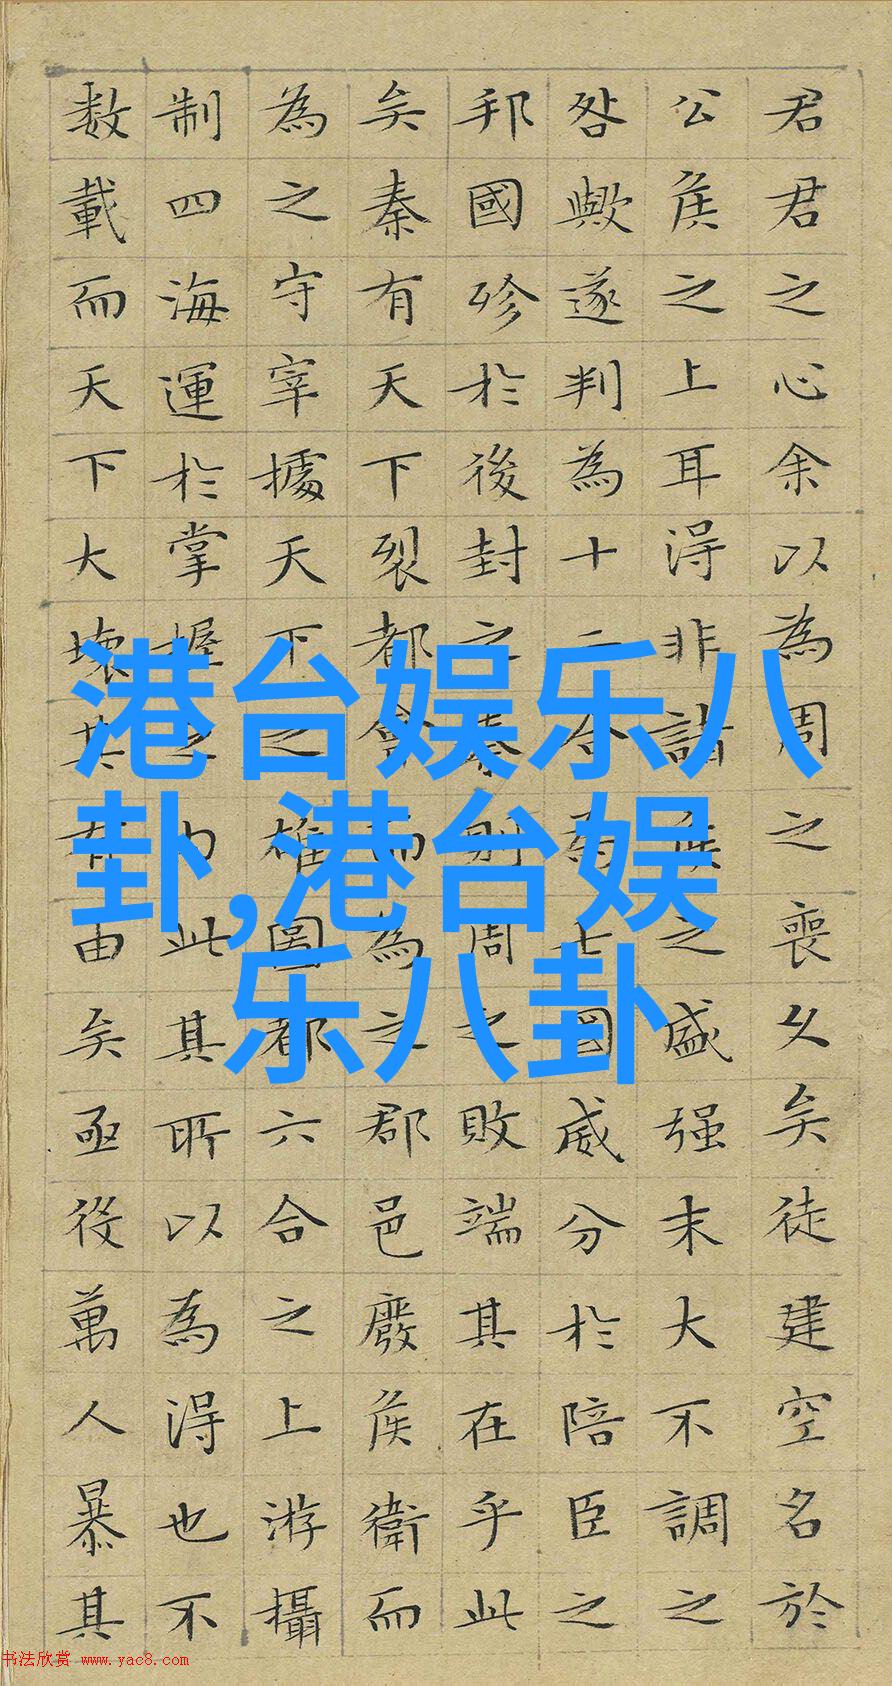 君君之心余以為周之喪久矣徒建空名於
公侯之上耳得非諸侯之盛强末大不調之
咎歟遂判為十二合為七國威分於陪臣之
邦國殄於後封之秦則周之敗端其在乎此
矣秦有天下裂都會而為之郡邑廢侯衛而
為之守宰據天下之雄圖都六合之上游攝
制四海運於掌握之内此其所以為得也不
数載而天下大壞其有由矣亟役萬人暴其
港台娱乐八
卦,港台娱
乐八卦
书法欣赏 www.yac8.com